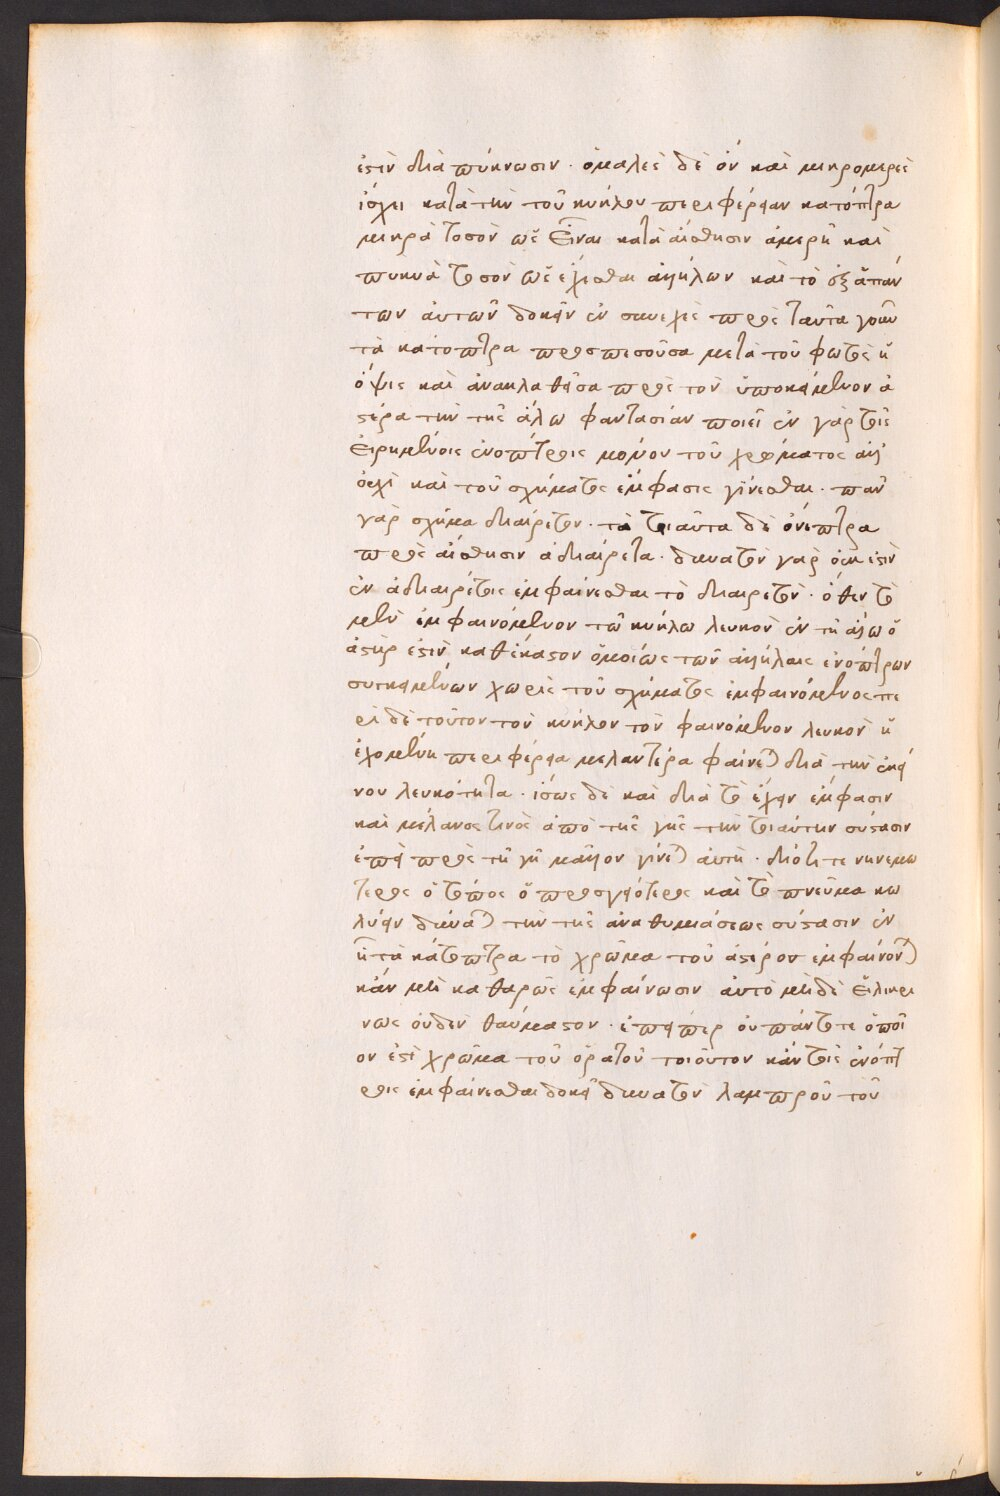 ἐστὶν διὰ πύκνωσιν. ὁμαλὲς δὲ ὂν καὶ μικρομερὲς
ἴσχει κατὰ τὴν τοῦ κύκλου περιφέρειαν κατόπτρα
μικρὰ τοσοῦ ὡς εἶναι κατὰ αἴσθησιν ἀμερῆ καὶ
πυκνὰ τοσοῦ ὡς ἔχεσθαι ἀλλήλων καὶ τὸ ἐξ ἁπάν
των αὐτῶν δοκεῖν ἓν συνεχὲς πρὸς ταῦτα γοῦν
τὰ κατοπτρα προσπεσοῦσα μετὰ τοῦ φωτὸς ἡ
ὄψις καὶ ἀνακλαθεῖσα πρὸς τὸν ὑποκείμενον ἀ
στέρα τὴν τῆς ἅλω φαντασίαν ποιεῖ ἐν γὰρ τοῖς
εἰρημένοις ἐνόπτροις μόνον τοῦ χρώματος ἀλλ
οὐχὶ καὶ τοῦ σχήματος ἔμφασις γίνεσθαι. πᾶν
γὰρ σχῆμα διαίρετον. τὰ τοιαῦτα δὲ ἔνοπτρα
πρὸς αἴσθησιν ἀδιαίρετα. δυνατὸν γὰρ οὐκ ἐστὶν
ἐν ἀδιαιρέτοις ἐμφαίνεσθαι τὸ διαιρετόν. ὅθεν τὸ
μὲν ἐμφαινόμενον τῶ κύκλω λευκὸν ἐν τῆ ἅλω ὁ
ἀστήρ ἐστὶν καθέκαστον ὁμοίως τῶν ἀλλήλαις ἐνόπτρων
συγκειμένων χωρὶς τοῦ σχήματος ἐμφαινόμενος πε
ρὶ δὲ τοῦτον τὸν κύκλον τὸν φαινόμενον λευκὸν ἡ
ἐχομένη περιφέρεια μελαντέρα φαίνεται διὰ τὴν ἐκεί
νου λευκότητα. ἴσως δὲ καὶ διὰ τὸ ἔχειν ἔμφασιν
καὶ μέλανος τινὸς ἀπὸ τῆς γῆς τὴν τοιαύτην σύστασιν
ἐπεὶ πρὸς τῆ γῆ μᾶλλον γίνεται αὐτή. διότι τε νηνεμω
τερος ὁ τόπος ὁ προσγειότερος καὶ τὸ πνεῦμα κω
λύειν δύναται τὴν τῆς ἀναθυμιάσεως σύστασιν ἐν
ἧ τὰ κάτοπτρα τὸ χρῶμα τοῦ ἀστέρος ἐμφαίνονται
κἂν μὴ καθαρῶς ἐμφαίνωσιν αὐτὸ μηδὲ εἰλικρι
νῶς οὐδὲν θαύμαστον. ἐπείπερ οὐ πάντοτε ὁποῖ
ον ἐστὶ χρῶμα τοῦ ὁρατοῦ τοιοῦτον κἀν τοῖς ἐνόπτ
ροις ἐμφαίνεσθαι δοκεῖ δυνατὸν λαμπροῦ τοῦ